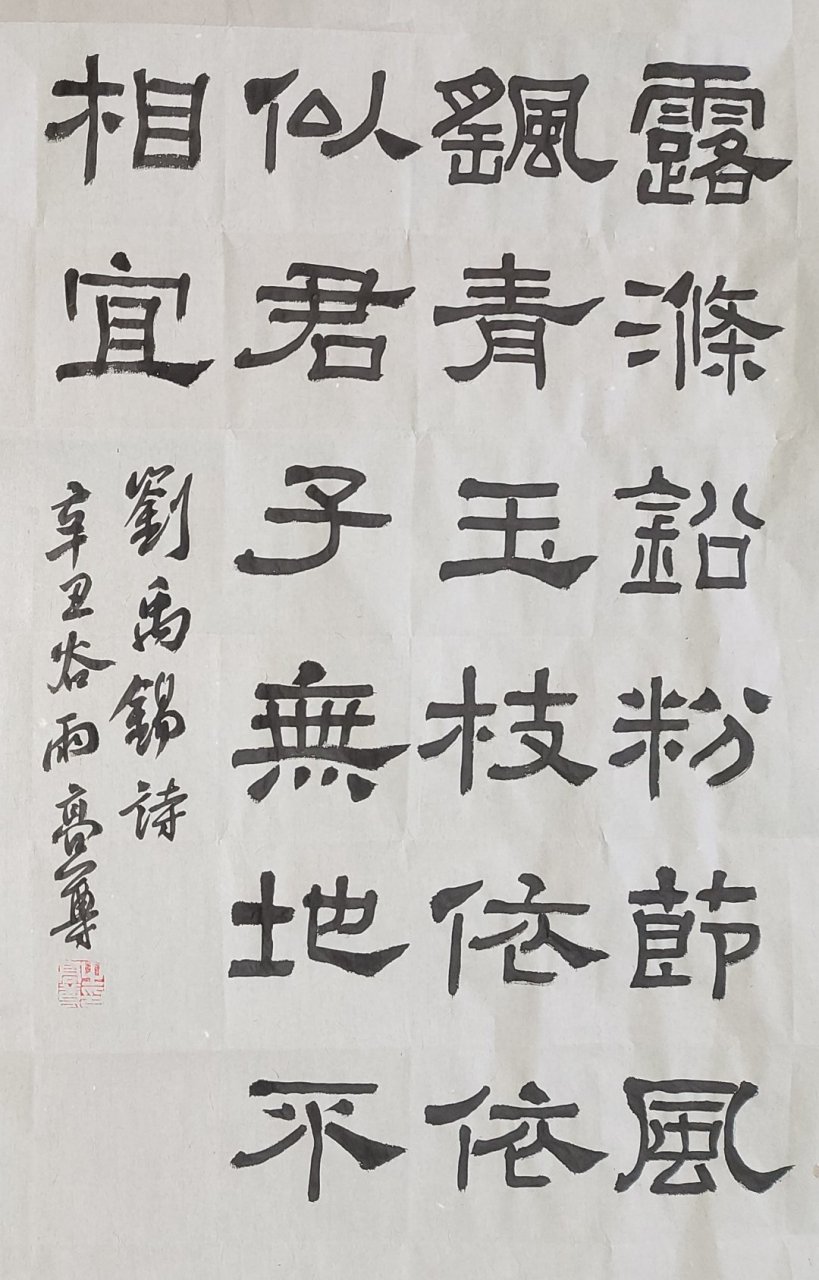 露滌鉛粉節風
颻青玉枝依依
似君子無地不
相宜
劉禹錫詩
辛丑谷雨亮尊